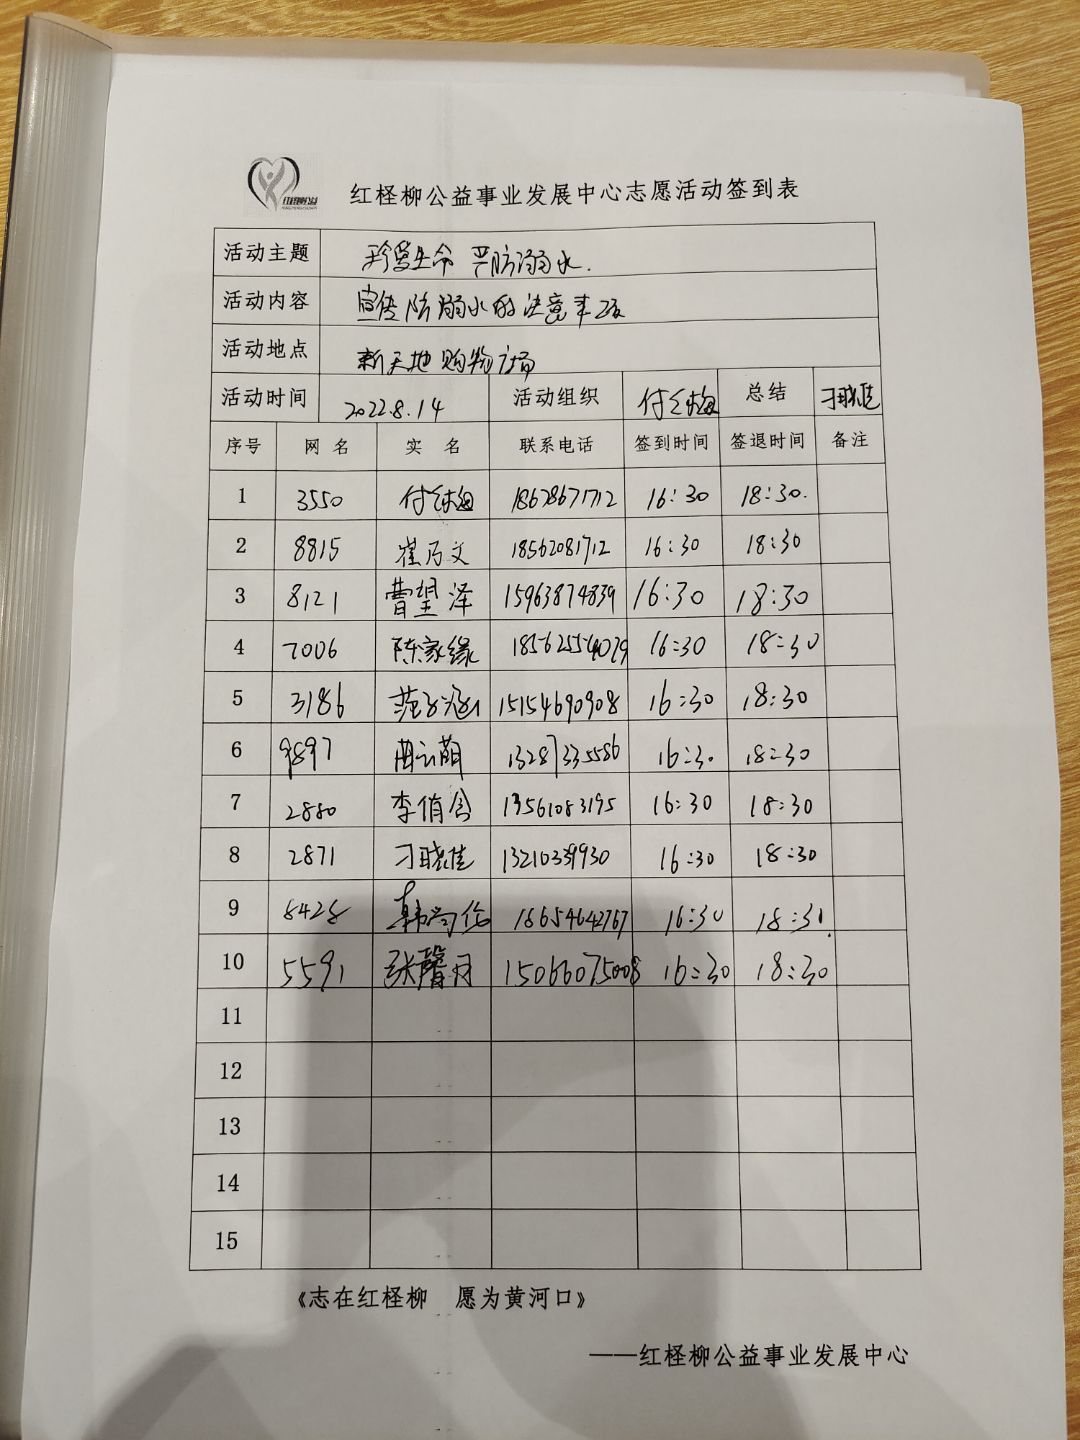 红柽柳公益事业发展中心志愿活动签到表
活动主题 珍爱生命 严防溺水.
活动内容 宣传防溺水的注意事项
活动地点 新天地购物广场
活动时间 2022.8.14 活动组织 付红梅 总结 刁晓佳
序号 网名 实名 联系电话 签到时间 签退时间 备注
1 3550 付红梅 18678671712 16:30 18:30.
2 8815 崔乃文 18562081712 16:30 18:30
3 8121 曹望泽 15963874839 16:30 18:30
4 7006 陈家缘 18562554029 16:30 18:30
5 3186 范子涵 15154690908 16:30 18:30
6 9897 曲云萌 13287335586 16:30 18:30
7 2880 李俏含 13561083195 16:30 18:30
8 2871 刁晓佳 13210339930 16:30 18:30
9 8428 韩尚伦 18654642767 16:30 18:30.
10 5591 张馨月 15066075008 16:30 18:30
11
12
13
14
15
《志在红柽柳 愿为黄河口》
——红柽柳公益事业发展中心